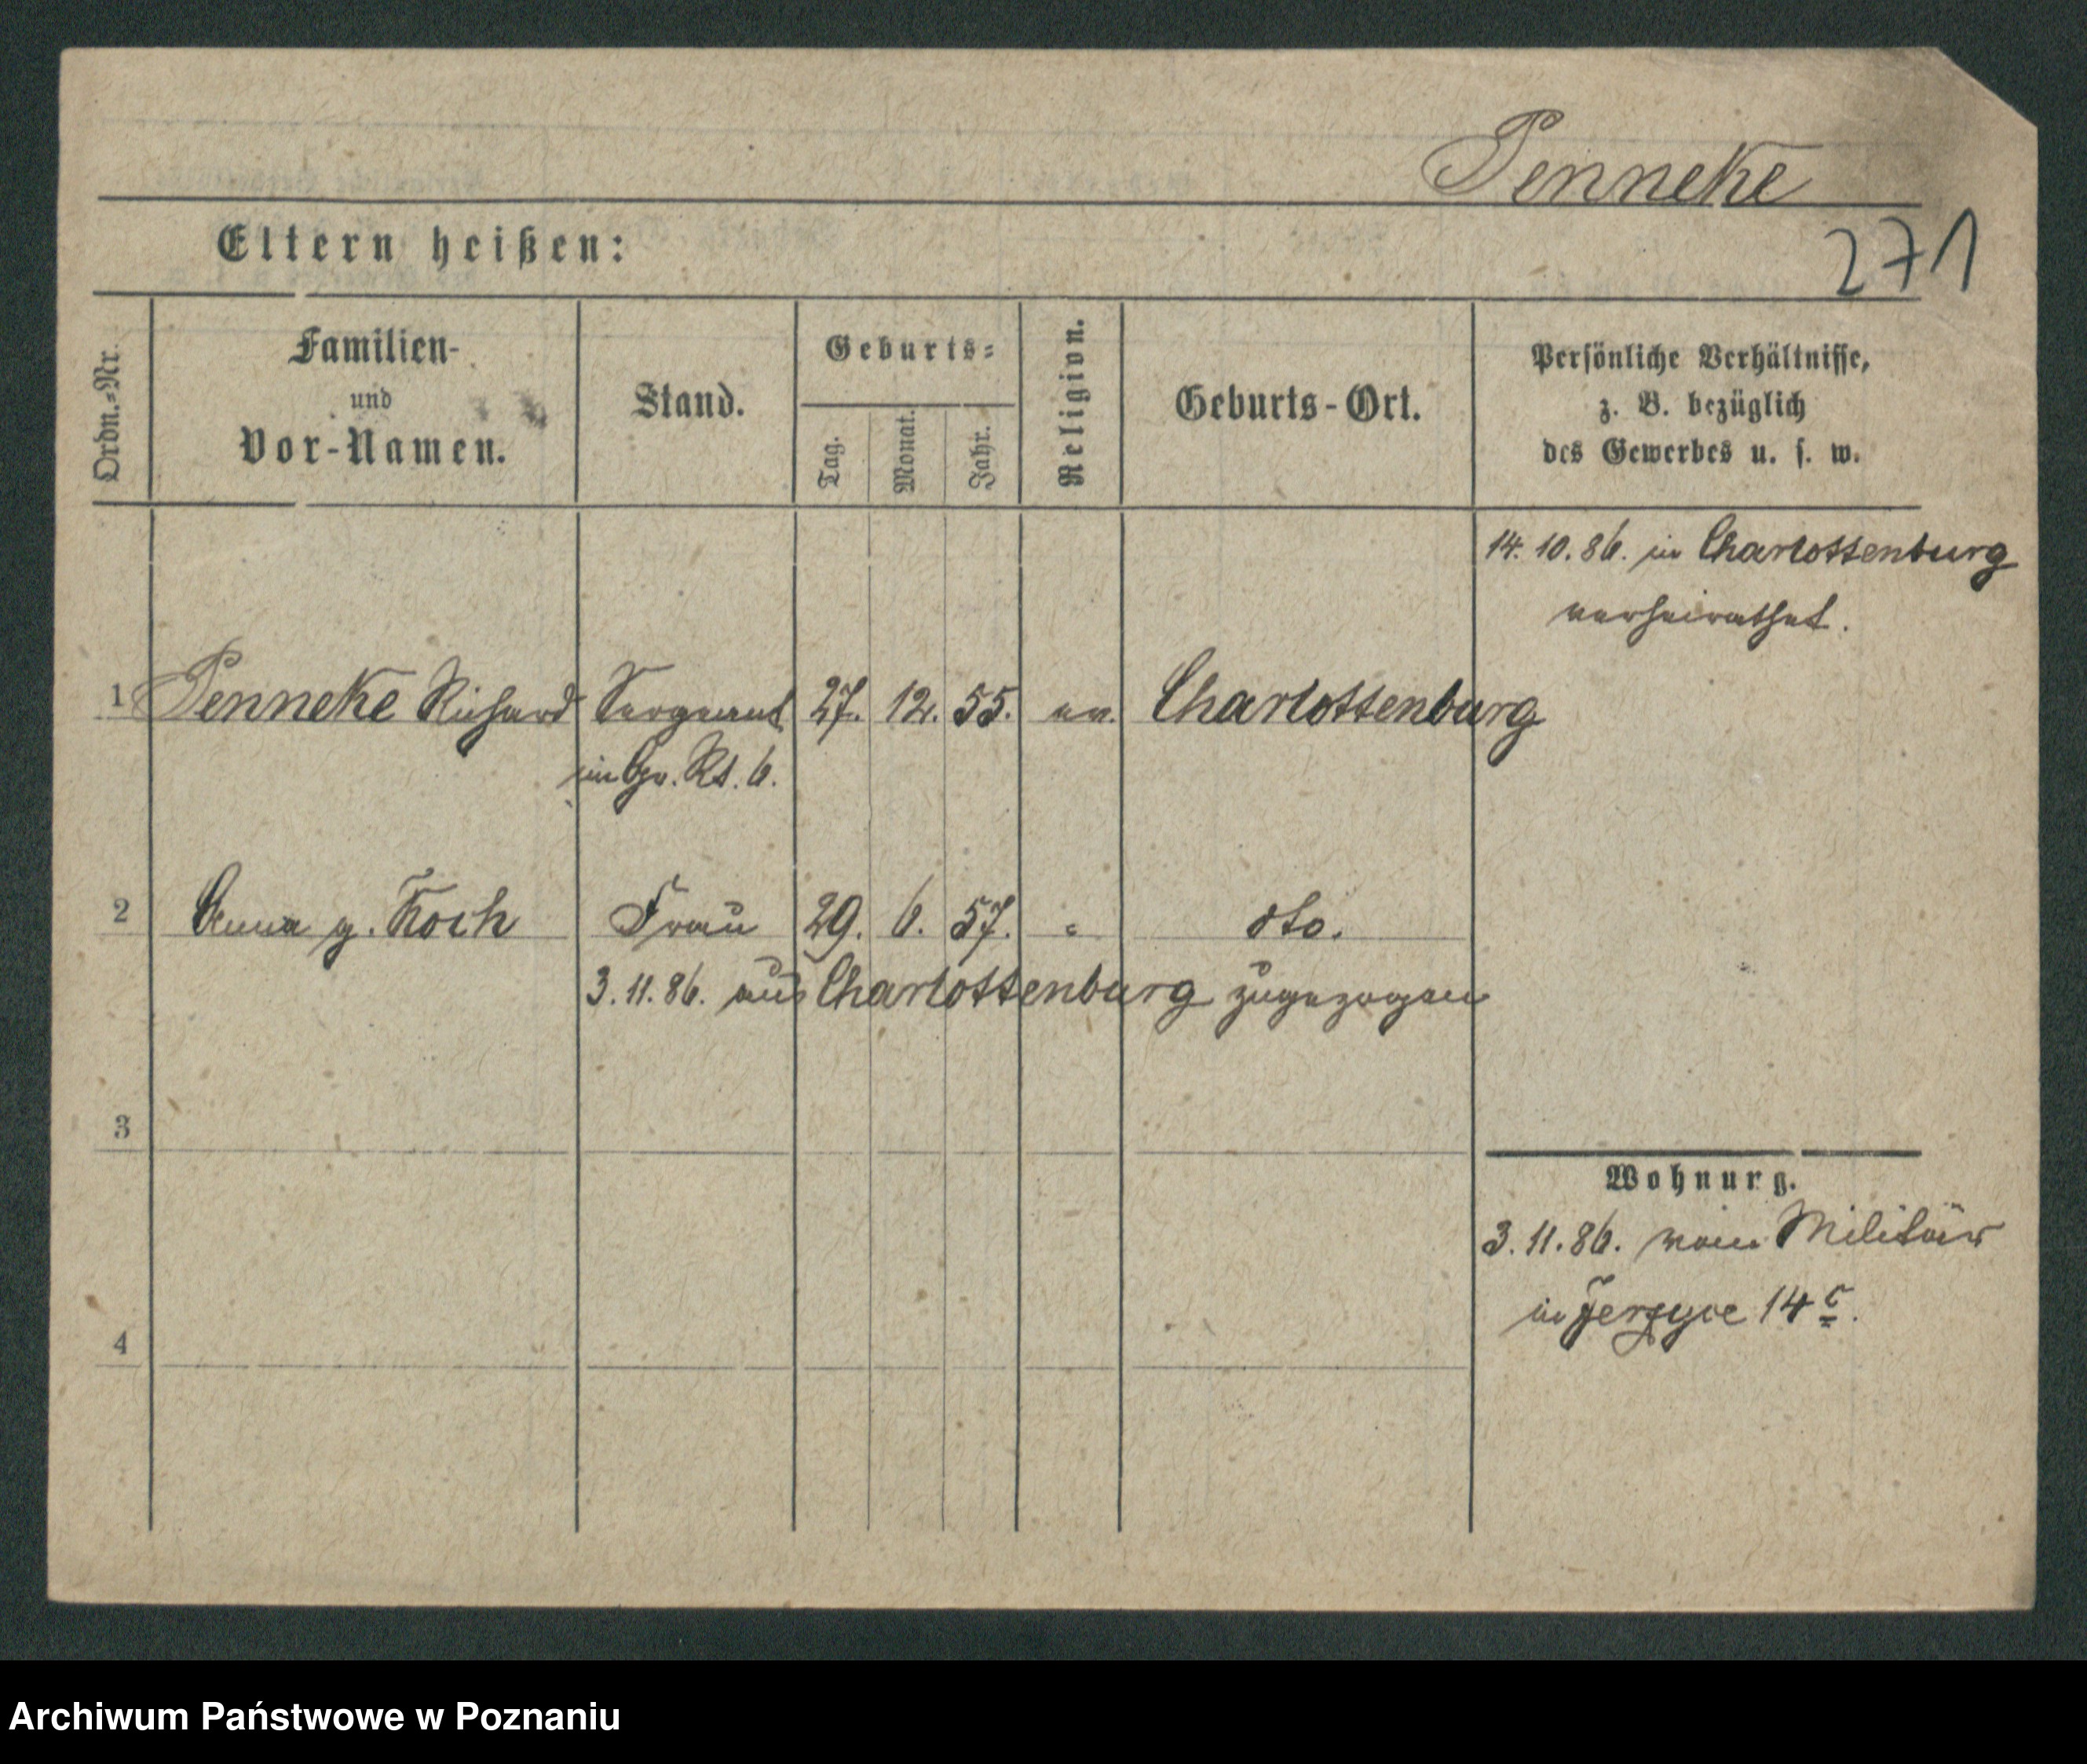 Penneke
271
Eltern heißen:
Ordn.-Nr.
Familien-
und
Vor-Namen.
Stand.
Geburts-
Tag.
Monat.
Jahr.
Religion.
Geburts-Ort.
Persönliche Verhältnisse,
z. B. bezüglich
des Gewerbes u. s. w.
14. 10. 86. in Charlottenburg
verheirathet.
1 Penneke Richard Sergeant 27. 12. 55. ev. Charlottenburg
im Gr. Rt. 6.
2 Anna g. Koch Frau 29. 6. 57. " dto.
3. 11. 86. aus Charlottenburg zugezogen
3
Wohnurg.
3. 11. 86. vom Militär
in Jerzyce 14 c.
4
Archiwum Państwowe w Poznaniu